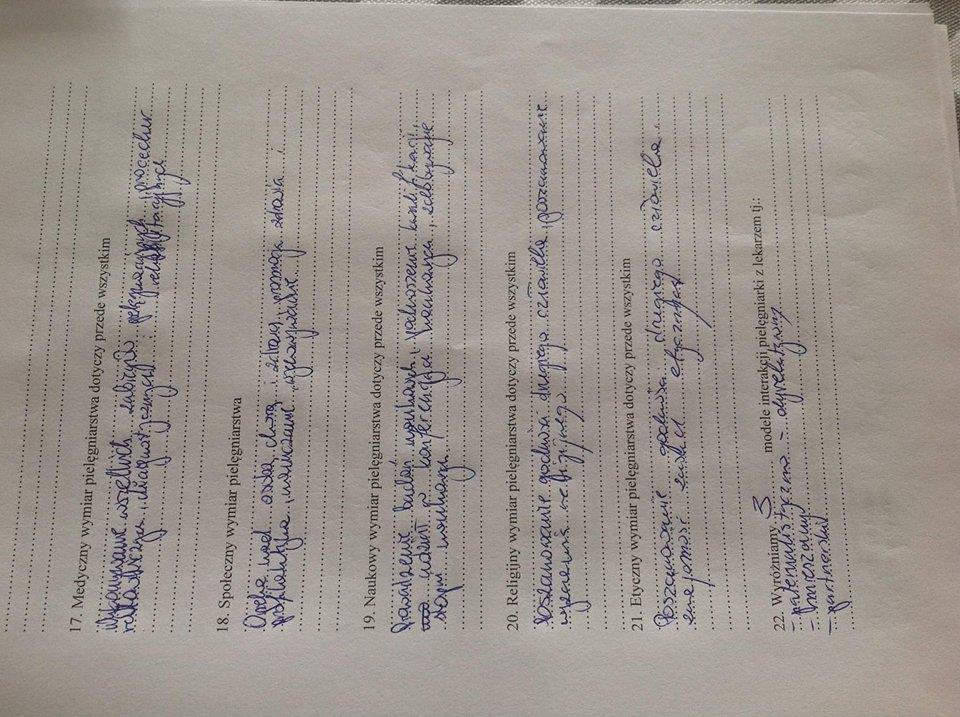 17. Medyczny wymiar pielęgniarstwa dotyczy przede wszystkim
Wykonywanie wszelkich zabiegów: pielęgnacyjnych, procedur
diagnostycznych
18. Społeczny wymiar pielęgniarstwa
Opieka nad osobą chorą i zdrową, promocja zdrowia i
profilaktyka, nauczanie, wychowywanie
19. Naukowy wymiar pielęgniarstwa dotyczy przede wszystkim
Prowadzenie badań naukowych, podnoszenie kwalifikacji,
udział w konferencjach naukowych, zdobywanie
stopni naukowych
20. Religijny wymiar pielęgniarstwa dotyczy przede wszystkim
Poszanowanie godności drugiego człowieka, poszanowanie
wyznania religijnego
21 Etyczny wymiar pielęgniarstwa dotyczy przede wszystkim
Poszanowanie godności drugiego człowieka,
znajomość zasad etycznych
22. Wyróżniamy 3 modele interakcji pielęgniarki z lekarzem tj:
- paternalistyczny - dyrektywny
-
- partnerski